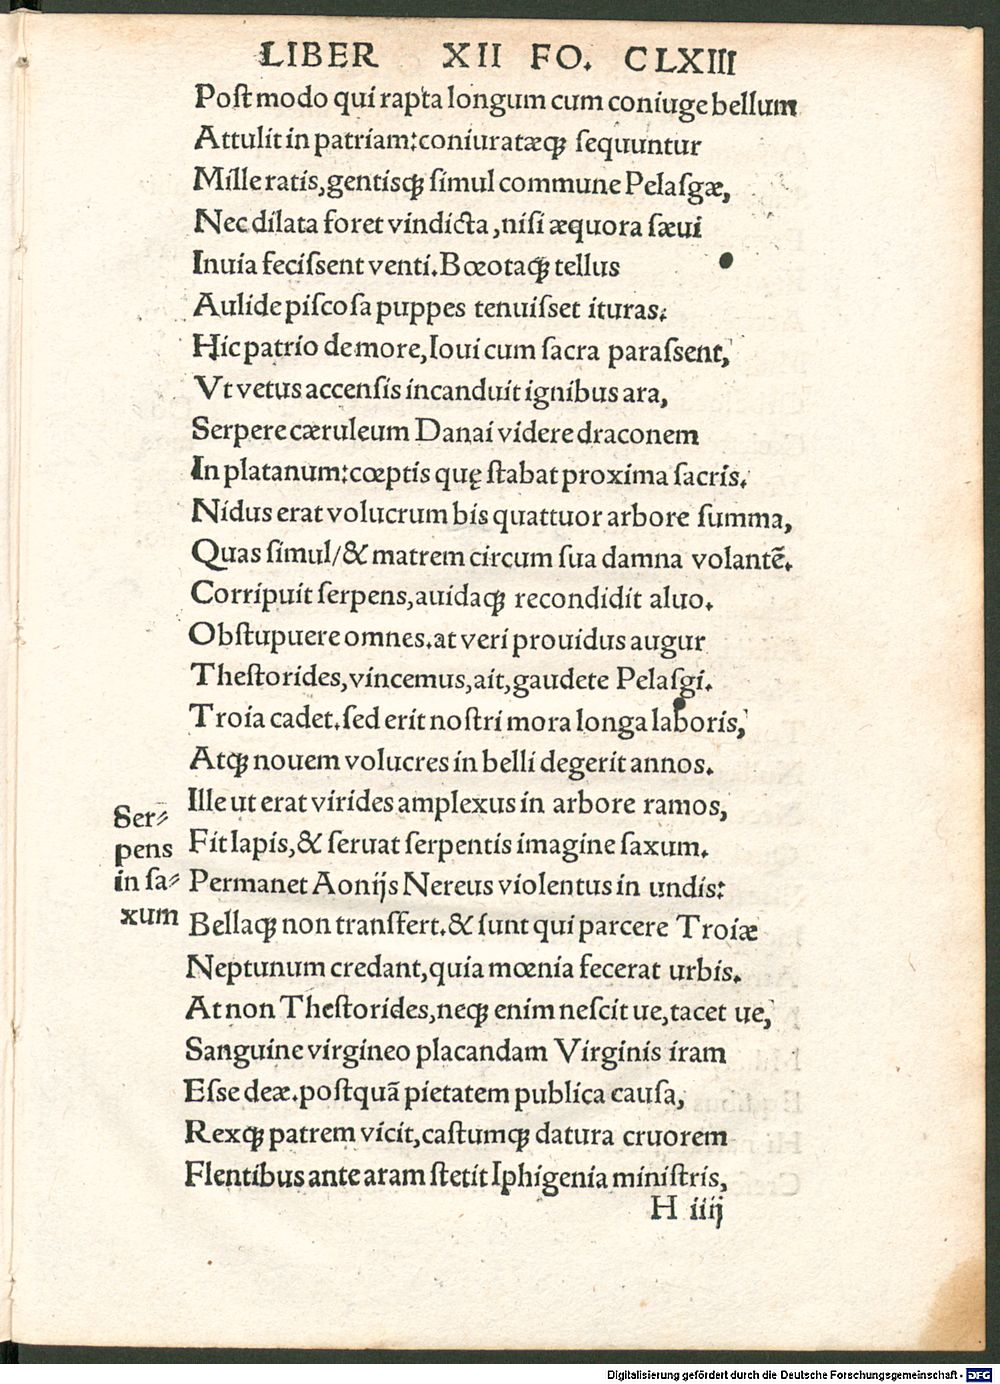 LIBER XII FO. CLXIII
Poſt modo qui rapta longum cum coniuge bellum
Attulit in patriam:coniuratæqꝫ ſequuntur
Mille ratis,gentisqꝫ ſimul commune Pelaſgæ,
Nec dilata foret vindicta,niſi æquora ſæui
Inuia feciſſent venti.Bœotaqꝫ tellus
Aulide piſcoſa puppes tenuiſſet ituras.
Hic patrio de more,Ioui cum ſacra paraſſent,
Vt vetus accenſis incanduit ignibus ara,
Serpere cæruleum Danai videre draconem
In platanum:cœptis quę ſtabat proxima ſacris.
Nidus erat volucrum bis quattuor arbore ſumma,
Quas ſimul/& matrem circum ſua damna volantē.
Corripuit ſerpens,auidaqꝫ recondidit aluo.
Obſtupuere omnes.at veri prouidus augur
Theſtorides,vincemus,ait,gaudete Pelaſgi.
Troia cadet.ſed erit noſtri mora longa laboris,
Atqꝫ nouem volucres in belli degerit annos.
Ille ut erat virides amplexus in arbore ramos,
Fit lapis,& ſeruat ſerpentis imagine ſaxum.
Ser⸗
pens
in ſa⸗
xum
Permanet Aonijs Nereus violentus in undis:
Bellaqꝫ non tranſfert.& ſunt qui parcere Troiæ
Neptunum credant,quia mœnia fecerat urbis.
At non Theſtorides,neqꝫ enim neſcit ue,tacet ue,
Sanguine virgineo placandam Virginis iram
Eſſe deæ.poſtquā pietatem publica cauſa,
Rexqꝫ patrem vicit,caſtumqꝫ datura cruorem
Flentibus ante aram ſtetit Iphigenia miniſtris,
H iiij
Digitalisierung gefördert durch die Deutsche Forschungsgemeinschaft - DFG